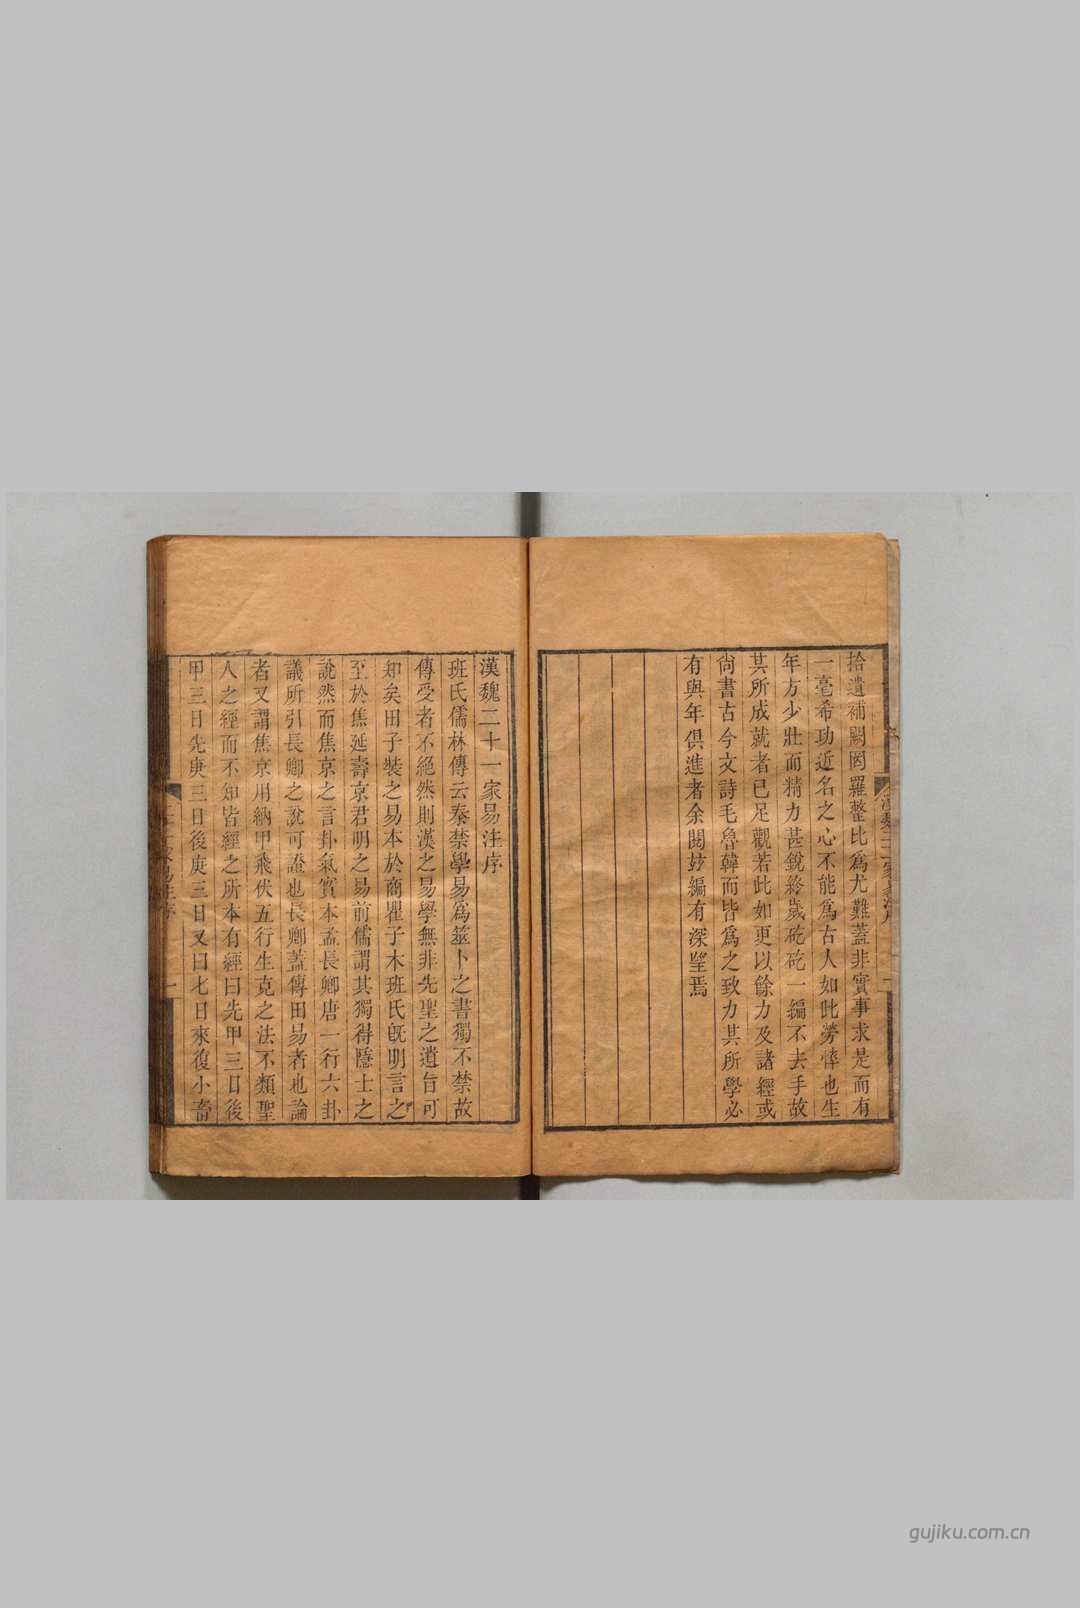 拾遺補闕网羅整比爲尤難蓋非實事求是而有
一毫希功近名之心不能爲古人如此勞悴也生
年方少壯而精力甚銳終歲矻矻一編不去手故
其所成就者已足觀若此如更以餘力及諸經或
尙書古今文詩毛魯韓而皆爲之致力其所學必
有與年俱進者余閱玆編有深望焉
漢魏二十一家易注序
班氏儒林傳云秦禁學易爲筮卜之書獨不禁故
傳受者不絕然則漢之易學無非先聖之遺旨可
知矣田子裝之易本於商瞿子木班氏旣明言之
至於焦延壽京君明之易前儒謂其獨得隱士之
說然而焦京之言卦氣實本孟長卿唐一行六卦
議所引長卿之說可證也長卿蓋傳田易者也論
者又謂焦京用納甲飛伏五行生克之法不類聖
人之經而不知皆經之所本有經曰先甲三日後
甲三日先庚三日後庚三日又曰七日來復小畜
gujiku.com.cn